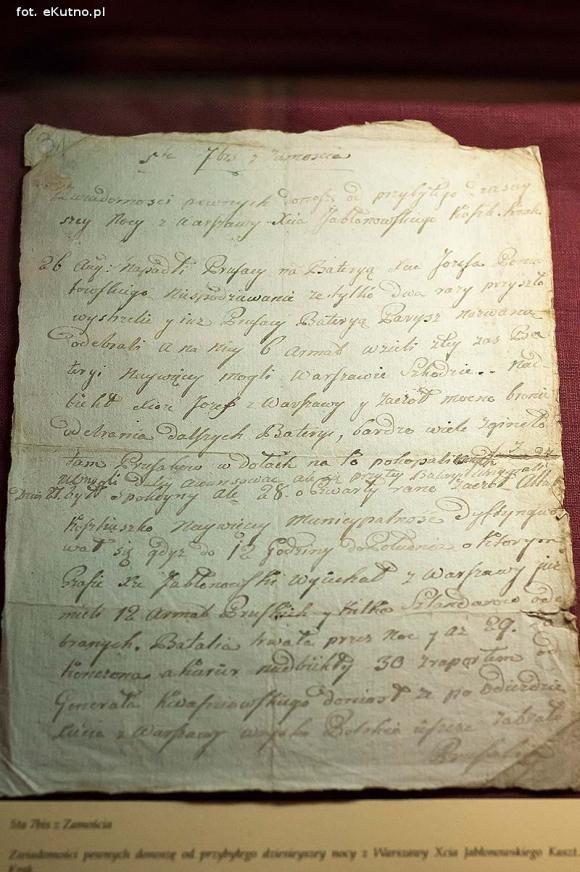 fot. eKutno.pl
Sta 7bis z Zamościa
Wiadomości pewnych donoszę od przybyłego
szey Nocy z Warszawy Xcia Jabłonowskiego Kaszt. Krak
26 Aug: Napadli Prusacy na Bateryą Xcia Jozefa Ponia
towskiego niespodziewanie ze tylko dwa razy przyszło
wystrzelić y iuz Prusacy Bateryą Parysz nazwaną
odebrali a na niey 6 Armat wzieli zkąd zas Ba
teryi naywięcy mogli Warszawie szkodzić.. Nad
biekł Xiąze Jozef z Warszawy y zaczoł mocno bronić
odebrania dalszych Bateryi, bardzo wiele zgineło
tam Prusakow w dołach na to pokopali
Dnia 27. był spokoyny ale 28. o czwarty rano zaczoł Attak
Kosciuszko Naywięcy Municypalność dystyngwo
wał się gdyz do 12 Godziny do Południa o ktorym
Xze Jabłonowski Wyiechał z Warszawy iuz
mieli 12 Armat Pruskich y kilka Sztandarow ode
branych. Batalia trwała przez Noc y az 29.
konczona a kurier nadbiekły 30 z raportem od
Generała Kwasniewskiego doniosł ze po odieździe
Xiecia z Warszawy woysko Polskie ieszcze zabrało
Prusakow
Sta 7bis z Zamościa
Zwiadomości pewnych donoszę od przybyłego dziesieyszey nocy z Warszawy Xcia Jabłonowskiego Kaszt.
Krak